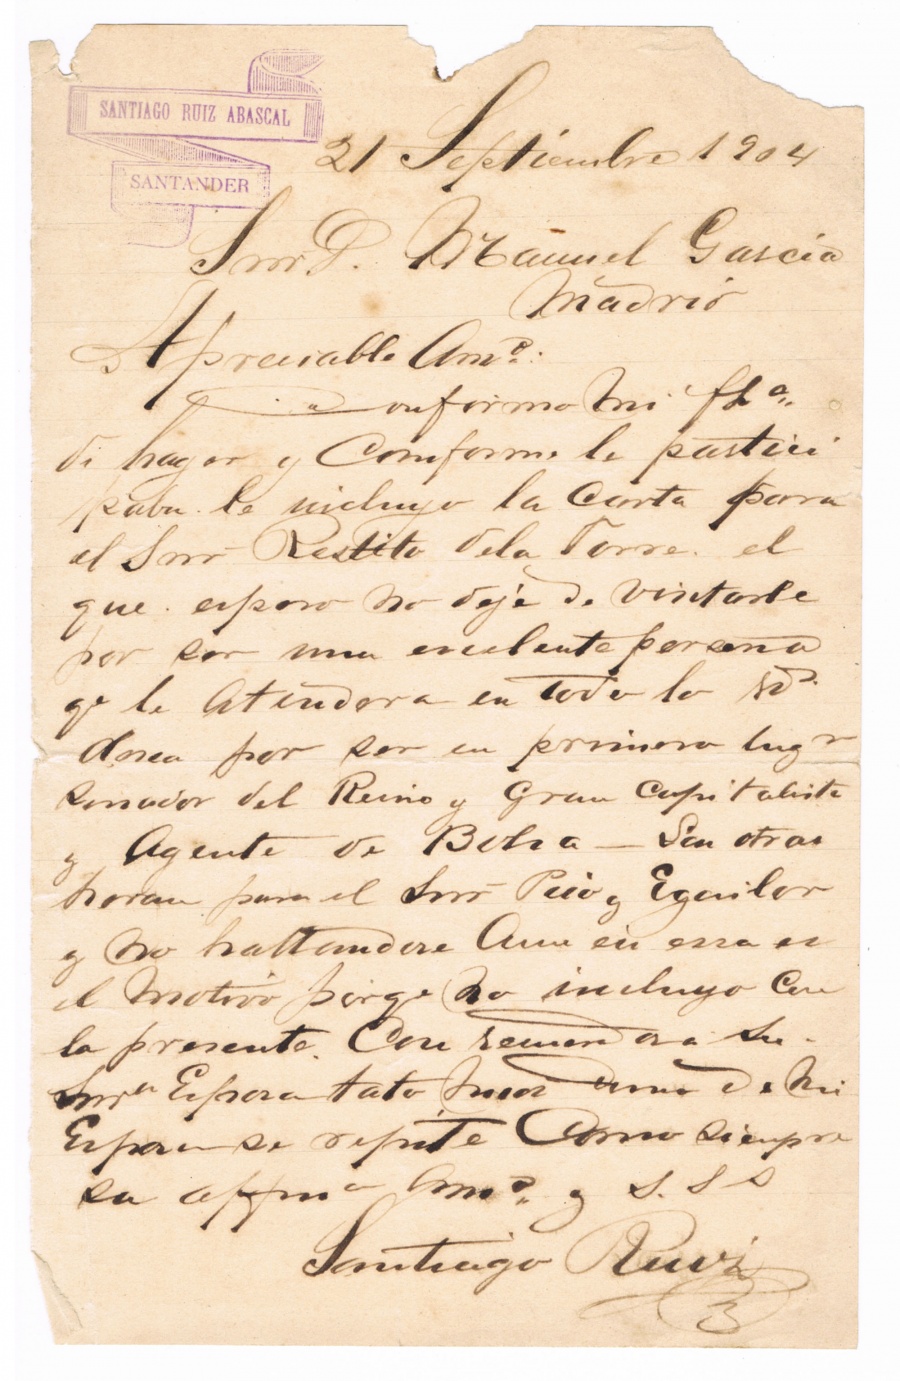 SANTIAGO RUIZ ABASCAL
SANTANDER
21 Septiembre 1904
Snr D. Manuel Garcia
Madrid
Apreciable Amº:
Conforme mi fha
de hayer y Comforme le partici
paba le incluyo la Carta para
el Snr Restito dela Torre. el
que espero no deje de visitarle
por ser una exelente persona
qe le Atendera en todo lo
desea por ser en primero lugr
senador del Reino y Gran Capitaliste
y Agente de Bolsa — Son otras
horan para el Snr Pico y Eguilor
y no hallandose Aun en essa es
el motivo porqe no incluyo Con
la presente. Con a su
Snra Esposa tato mios Como de mi
Espoza se repite Como siempre
su affmo Amº y S. S S
Santiago Ruiz